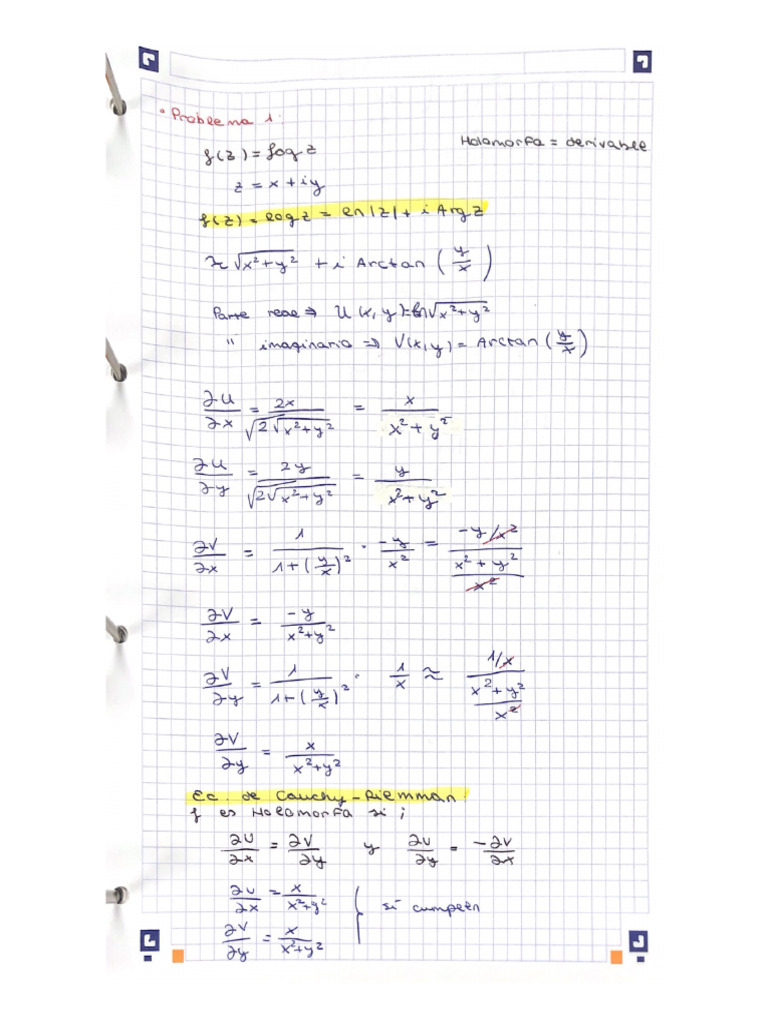 • Problema 1:
f(z) = log z
Holomorfa = derivable
z = x + iy
f(z) = log z = ln|z| + i Arg z
√x²+y² + i Arctan (y/x)
Parte real ⇒ U(x,y) = ln√x²+y²
" imaginaria ⇒ V(x,y) = Arctan (y/x)
∂U/∂x = 2x/√2√x²+y² = x/x²+y²
∂U/∂y = 2y/√2√x²+y² = y/x²+y²
∂V/∂x = 1/1+(y/x)² · -y/x² = -y/x²/x²+y²/x²
∂V/∂x = -y/x²+y²
∂V/∂y = 1/1+(y/x)² · 1/x ≈ 1/x/x²+y²/x²
∂V/∂y = x/x²+y²
Ec. de Cauchy-Riemman:
f es Holomorfa si ;
∂U/∂x = ∂V/∂y y ∂U/∂y = -∂V/∂x
∂U/∂x = x/x²+y²
sí cumplen
∂V/∂y = x/x²+y²